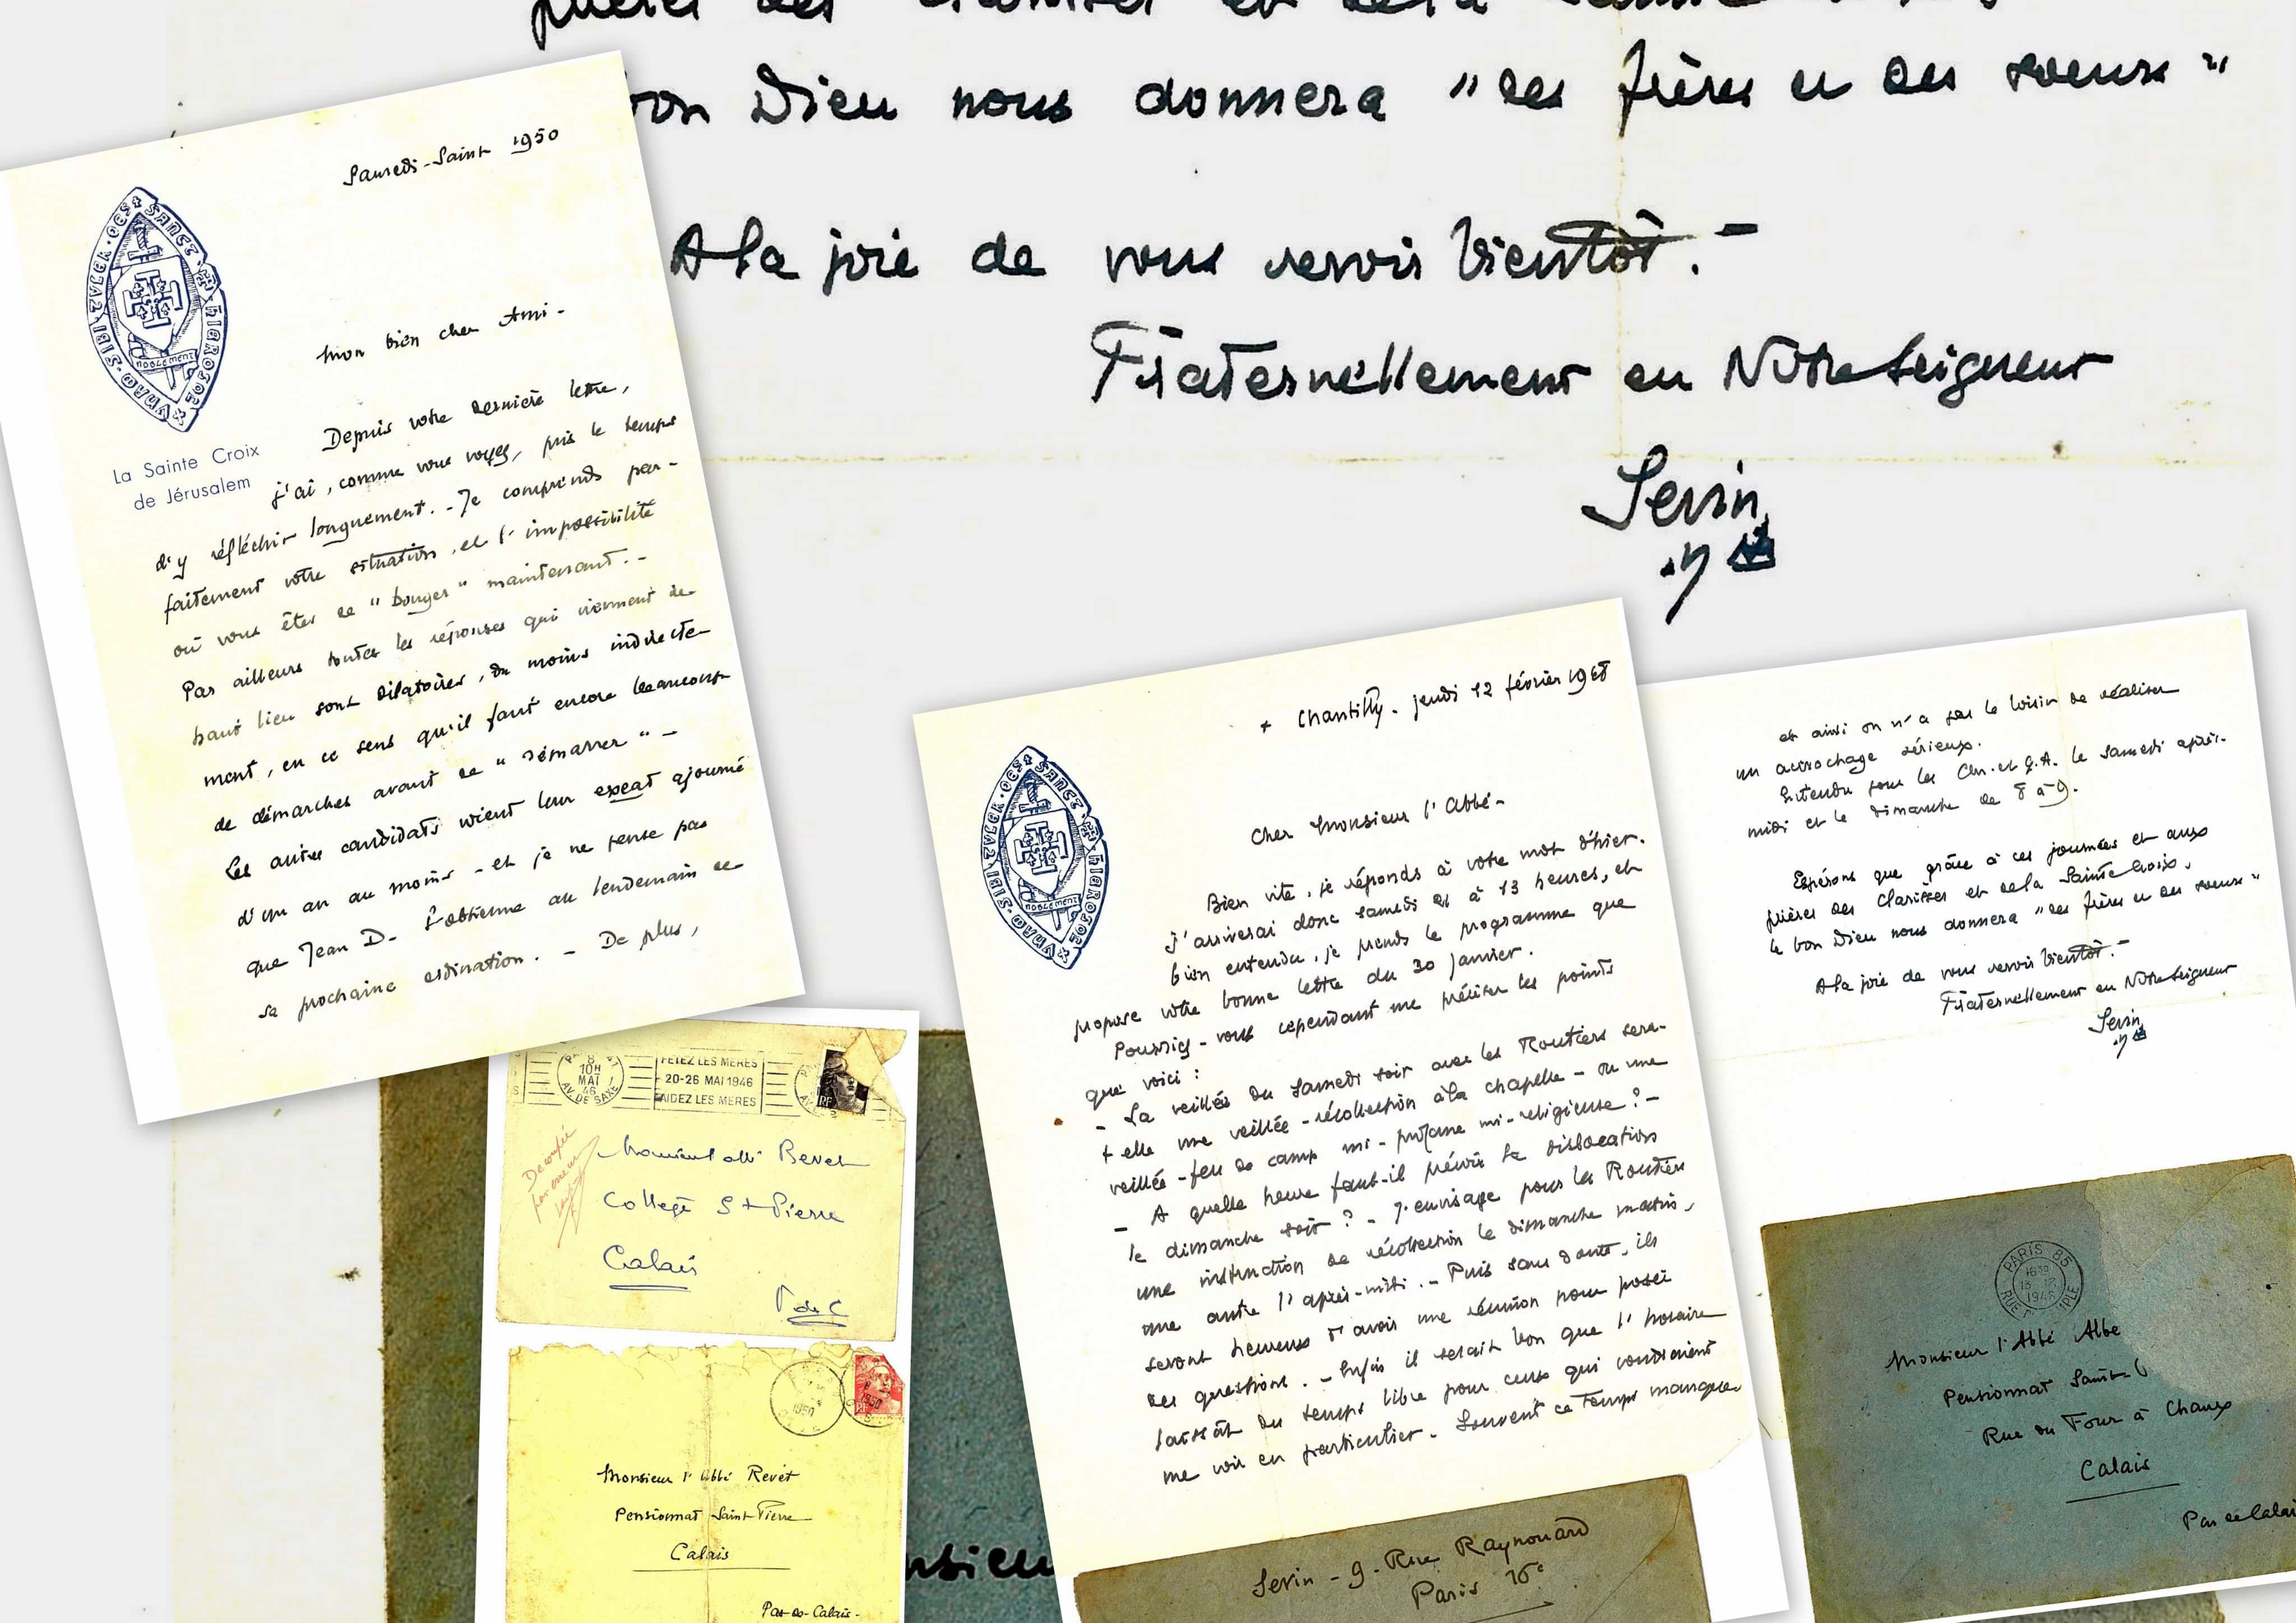 bon Dieu nous donnera "des frères et des soeurs"
A la joie de vous revoir bientôt. -
Fraternellement en Notre Seigneur
Sevin
Samedi-Saint 1950
SANCT HIEROSOL
NOBLEMENT
La Sainte Croix
de Jérusalem
Mon bien cher Ami -
Depuis votre dernière lettre,
j'ai, comme vous voyez, pris le temps
d'y réfléchir longuement. - Je comprends par-
faitement votre situation, et l'impossibilité
où vous êtes de "bouger" maintenant. -
Par ailleurs toutes les réponses qui viennent de
haut lieu sont dilatoires, du moins indirecte-
ment, en ce sens qu'il faut encore beaucoup
de démarches avant de "démarrer" -
Les autres candidats voient leur exeat ajourné
d'un an au moins - et je ne pense pas
que Jean D. l'obtienne au lendemain de
sa prochaine ordination. - De plus,
+ Chantilly - jeudi 12 février 1948
SANCT HIEROSOL
NOBLEMENT
Cher Monsieur l'Abbé -
Bien vite, je réponds à votre mot d'hier.
J'arriverai donc samedi 21 à 13 heures, et
bien entendu, je prends le programme que
propose votre bonne lettre du 30 janvier.
Pourriez-vous cependant me préciser les points
que voici :
- La veillée du samedi soir avec les Routiers sera-
t-elle une veillée-récollection à la chapelle - ou une
veillée-feu de camp mi-profane mi-religieuse ? -
- A quelle heure faut-il prévoir la dislocation
le dimanche soir ? - J'envisage pour les Routiers
une instruction de récollection le dimanche matin,
une autre l'après-midi. - Puis sans doute, ils
seront heureux d'avoir une réunion pour poser
des questions. - Enfin il serait bon que l'horaire
laissât du temps libre pour ceux qui voudraient
me voir en particulier. Souvent ce temps manque
et ainsi on n'a pas le loisir de réaliser
un accrochage sérieux.
Entendu pour les Chr. et G.A. le samedi après-
midi et le dimanche de 8 à 9.
Espérons que grâce à ces journées et aux
prières des Clarisses et de la Sainte Croix,
le bon Dieu nous donnera "des frères et des soeurs"
A la joie de vous revoir bientôt. -
Fraternellement en Notre Seigneur
Sevin
10H
MAI
46
AV. DE SAXE
FETEZ LES MERES
20-26 MAI 1946
AIDEZ LES MERES
RF
Decoupée
par erreur
Monsieur l'abbé Revet
College St Pierre
Calais
P de C
1950
RF
Monsieur l'Abbé Revet
Pensionnat Saint-Pierre
Calais
Pas-de-Calais -
nsieu
Sevin - 9. Rue Raynouard
Paris 16e
PARIS 85
1948
RUE
Monsieur l'Abbé Albe
Pensionnat Saint-
Rue du Four à Chaux
Calais
Pas de Calai